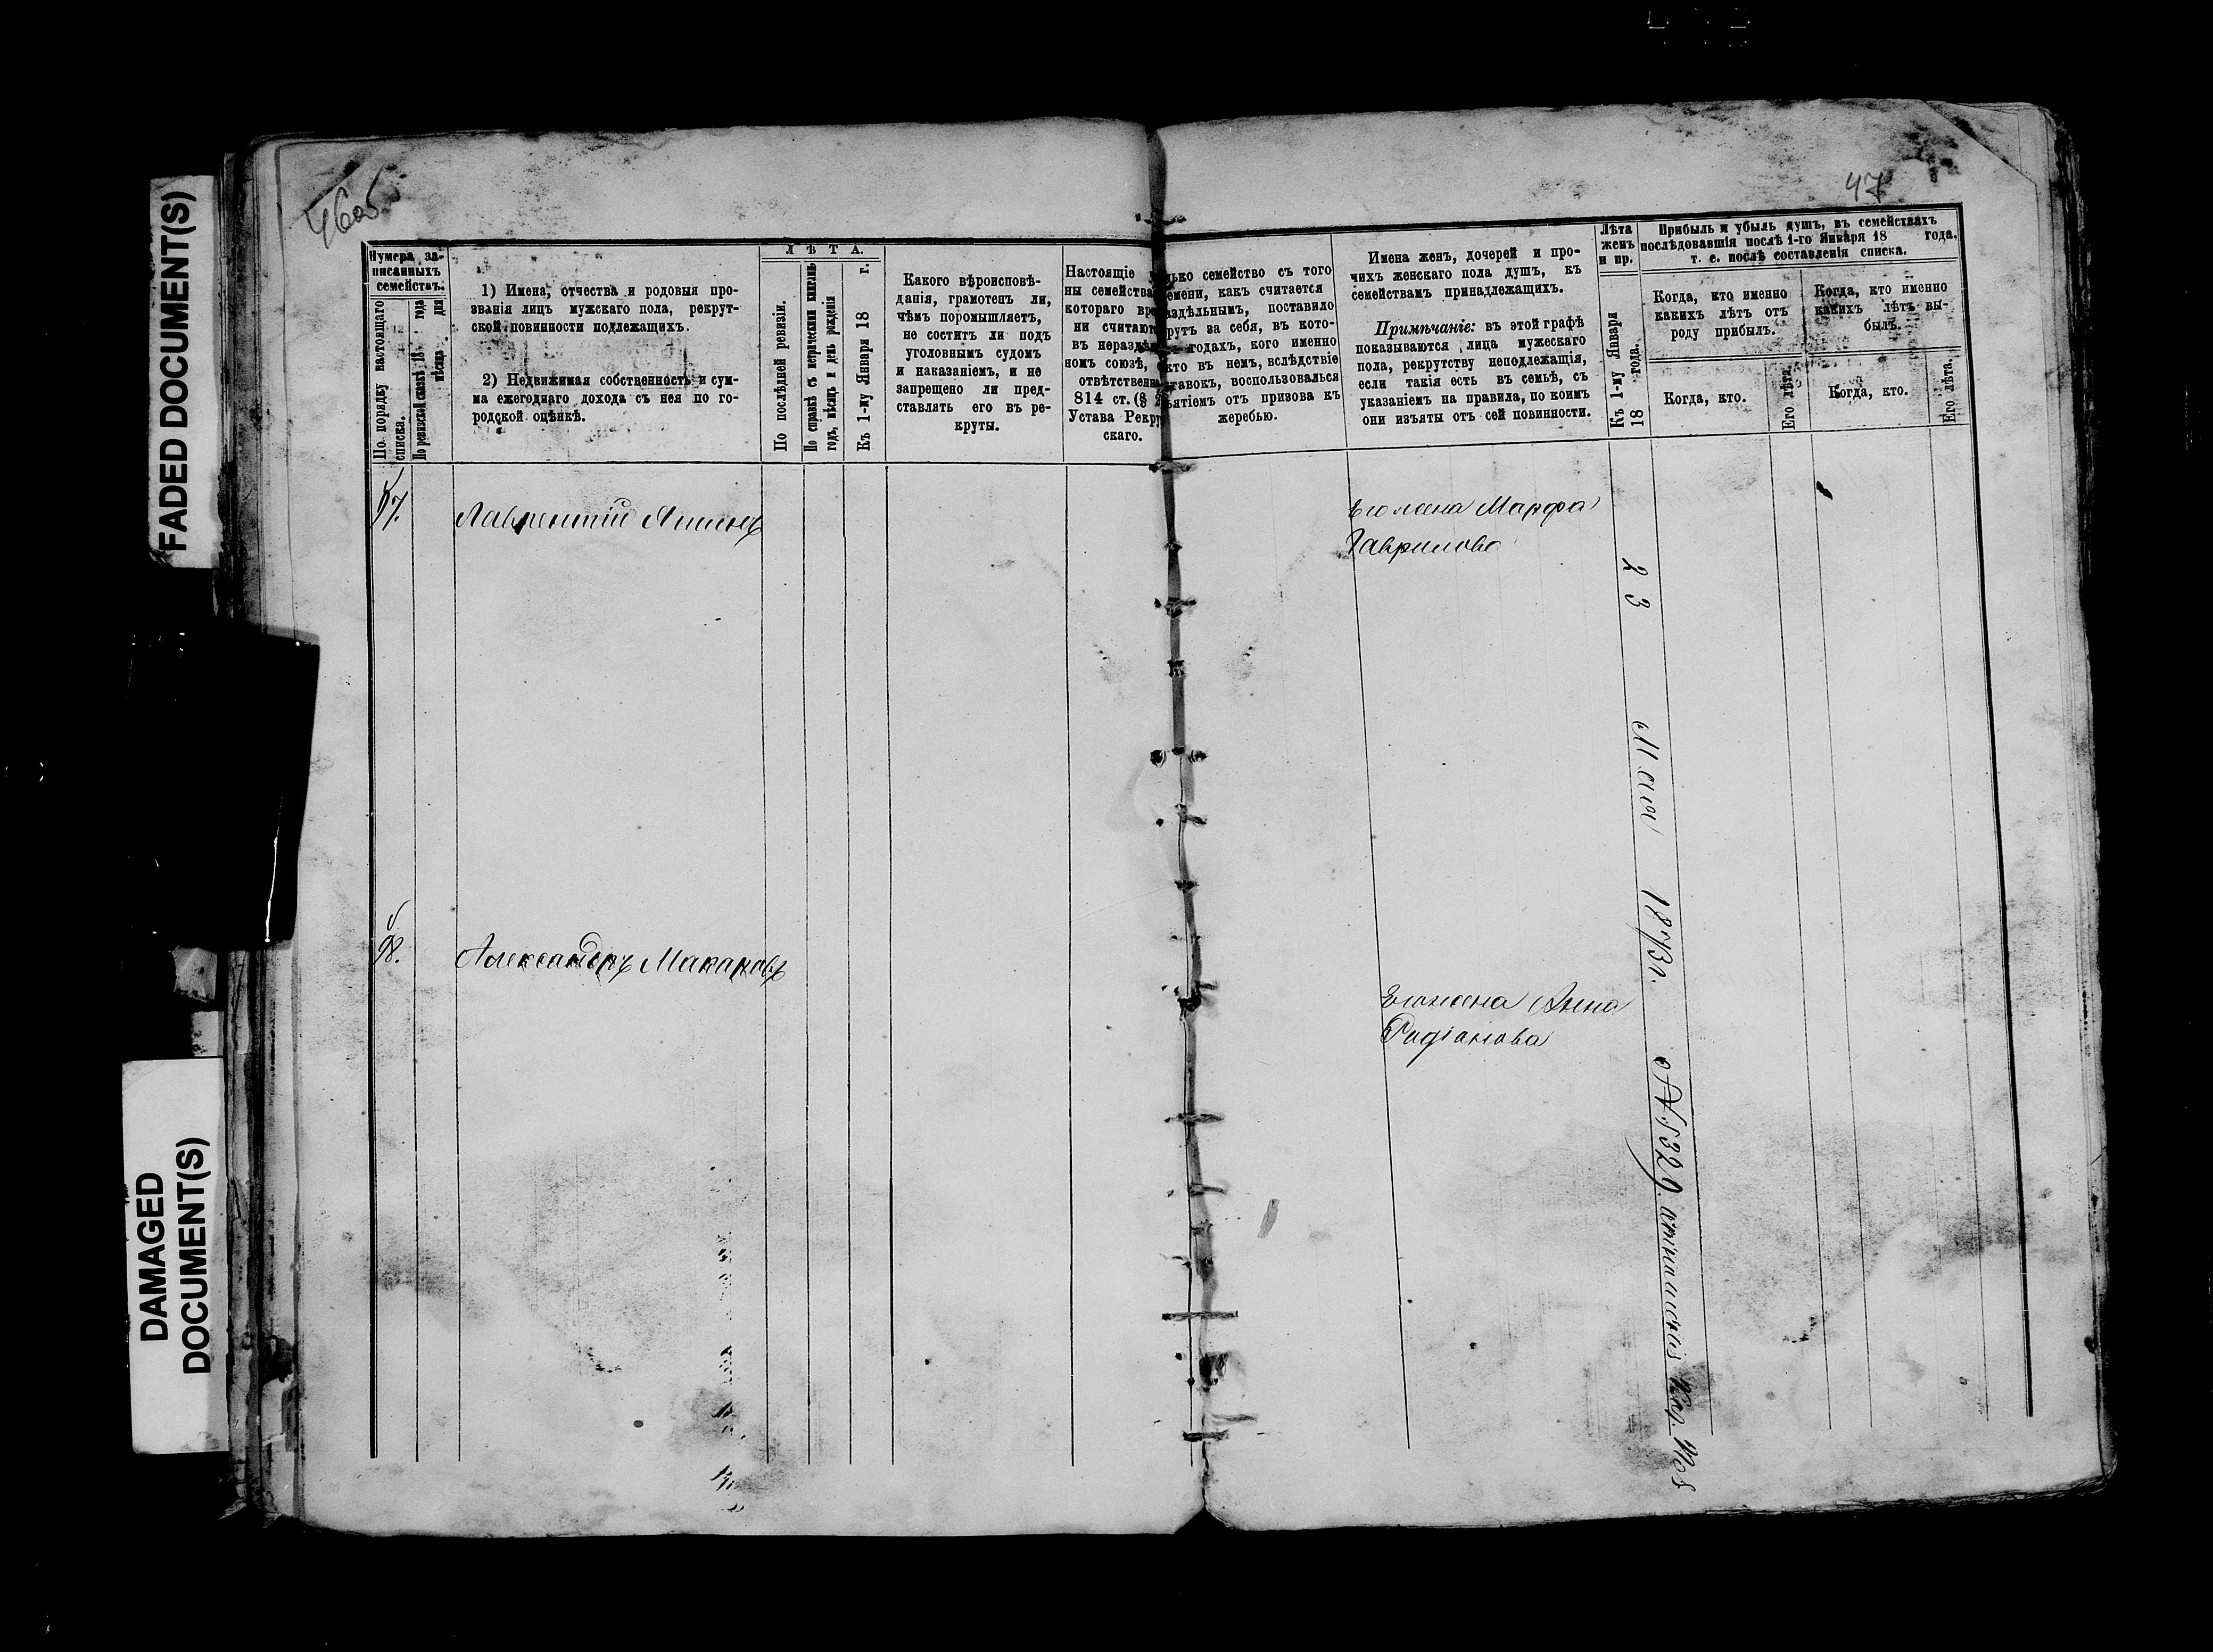 FADED DOCUMENT(S)
DAMAGED
DOCUMENT(S)
46об
47
Нумера за-
писанныхъ
семействъ.
По порядку настоящаго
списка.
По ревизской сказкѣ 18 года
мѣсяца дня
1) Имена, отчества и родовыя про-
званія лицъ мужскаго пола, рекрут-
ской повинности подлежащихъ.
2) Недвижимая собственность и сум-
ма ежегоднаго дохода съ нея по го-
родской оцѣнкѣ.
ЛѢТА.
По послѣдней ревизіи.
По справкѣ съ метрическими книгами
годъ, мѣсяцъ и день рожденія
Къ 1-му Января 18 г.
Какого вѣроисповѣ-
данія, грамотенъ ли,
чѣмъ поромышляетъ,
не соститъ ли подъ
уголовнымъ судомъ
и наказаніемъ, и не
запрещено ли пред-
ставлять его въ ре-
круты.
Настоящіе
ны семейства
котораго вре
ни считают
въ нераздѣ
номъ союзѣ,
отвѣтственн
814 ст. (§
Устава Рекру
скаго.
лько семейство съ того
емени, какъ считается
аздѣльнымъ, поставило
рутъ за себя, въ кото-
годахъ, кого именно
кто въ немъ, вслѣдствіе
тавокъ, воспользовался
ъятіемъ отъ призова къ
жеребью.
Имена женъ, дочерей и про-
чихъ женскаго пола душъ, къ
семействамъ принадлежащихъ.
Примѣчаніе: въ этой графѣ
показываются лица мужескаго
пола, рекрутству неподлежащія,
если такія есть въ семьѣ, съ
указаніемъ на правила, по коимъ
они изъяты отъ сей повинности.
Лѣта
женъ
и пр.
Къ 1-му Января
18 года.
Прибыль и убыль душъ, въ семействахъ
послѣдовавшія послѣ 1-го Января 18 года.
т. е. послѣ составленія списка.
Когда, кто именно
какихъ лѣтъ отъ
роду прибылъ.
Когда, кто именно
какихъ лѣтъ вы-
былъ.
Когда, кто.
Его лѣта.
Когда, кто.
Его лѣта.
97.
Лаврентій
Его жена Марфа
Гаврилова
98.
Александръ Макаровъ
Его жена Анна
Родіонова
23 Мая 1873г. №5329